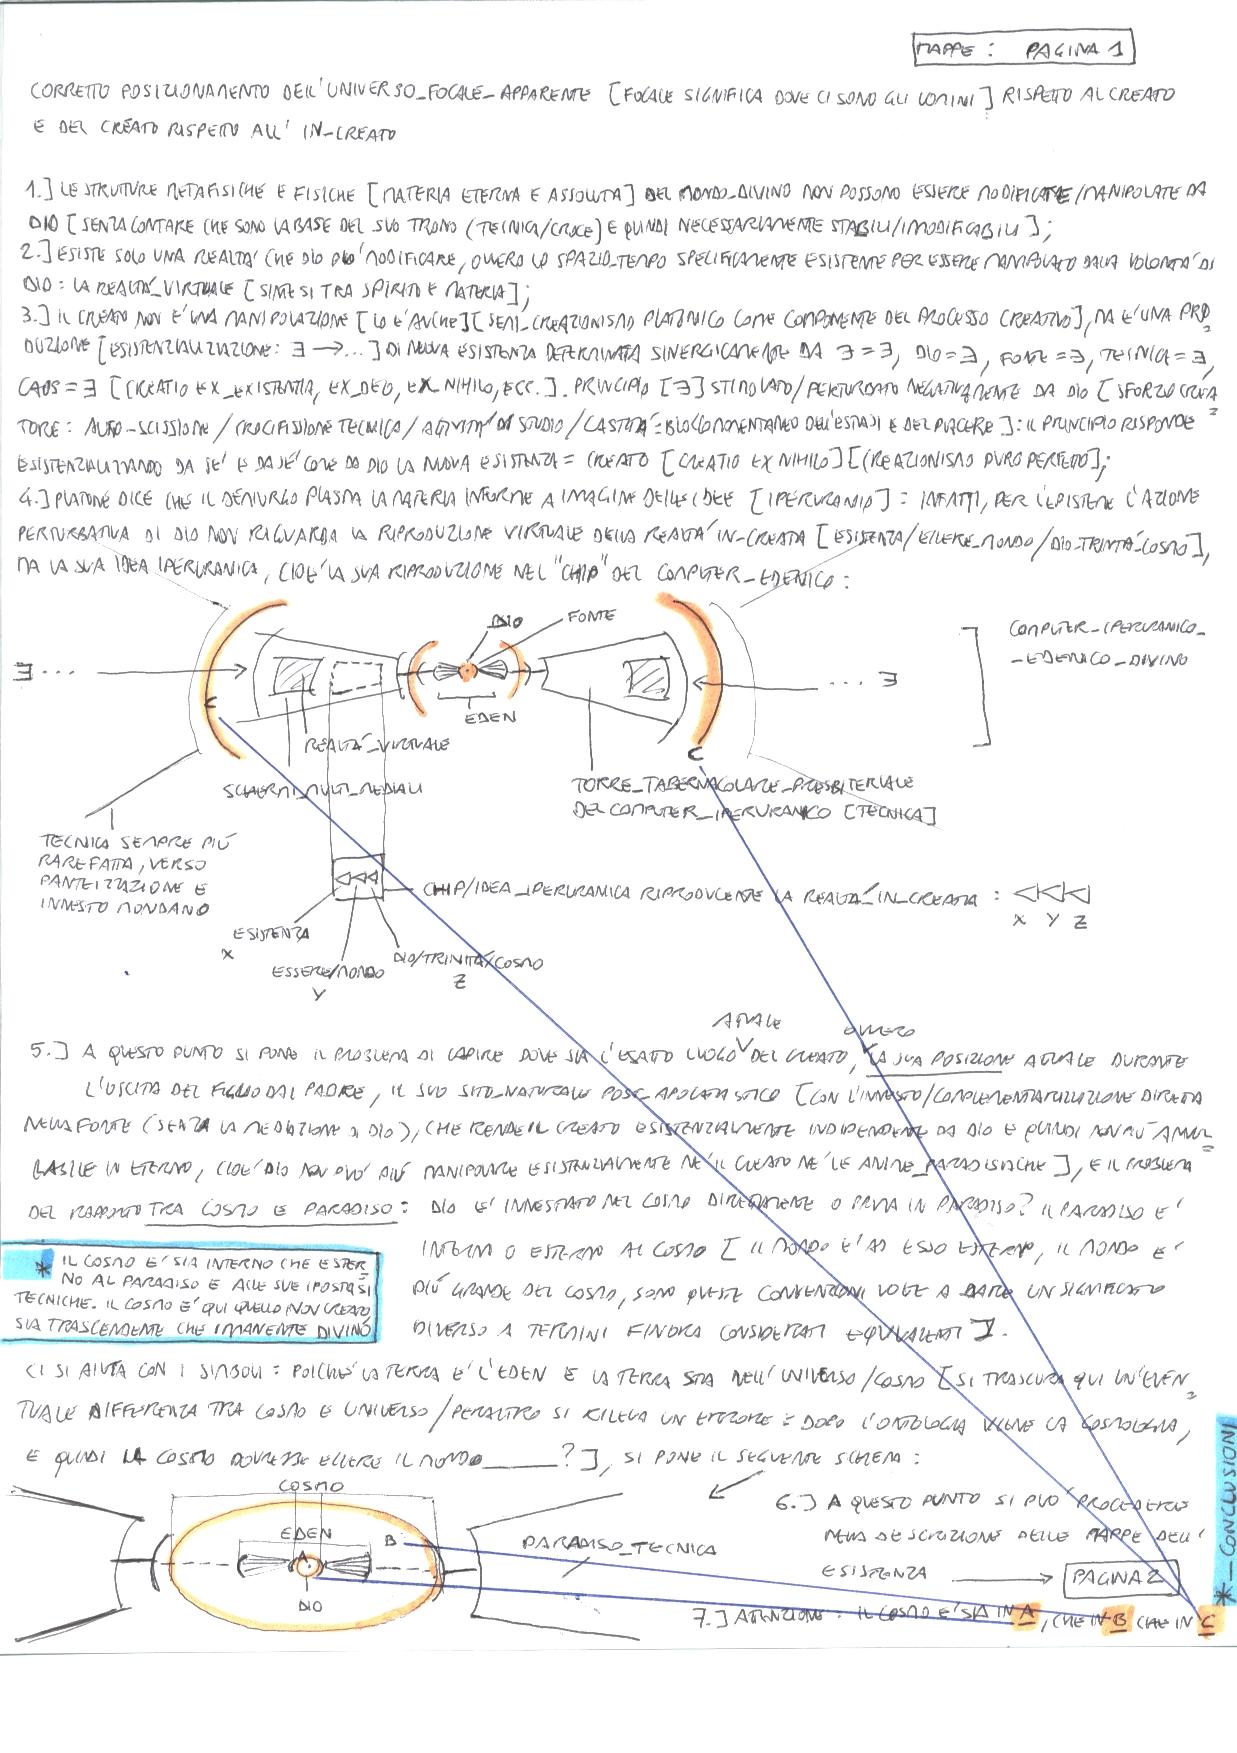 MAPPE: PAGINA 1
CORRETTO POSIZIONAMENTO DELL'UNIVERSO_FOCALE_APPARENTE [FOCALE SIGNIFICA DOVE CI SONO GLI UOMINI] RISPETTO AL CREATO
E DEL CREATO RISPETTO ALL' IN-CREATO
1.] LE STRUTTURE METAFISICHE E FISICHE [MATERIA ETERNA E ASSOLUTA] DEL MONDO_DIVINO NON POSSONO ESSERE MODIFICATE/MANIPOLATE DA
DIO [SENZA CONTARE CHE SONO LA BASE DEL SUO TRONO (TECNICA/CROCE) E QUINDI NECESSARIAMENTE STABILI/IMODIFICABILI];
2.] ESISTE SOLO UNA REALTA' CHE DIO PUO' MODIFICARE, OVVERO LO SPAZIO_TEMPO SPECIFICAMENTE ESISTENTE PER ESSERE MANIPOLATO DALLA VOLONTA' DI
DIO: LA REALTA'_VIRTUALE [SINTESI TRA SPIRITO E MATERIA];
3.] IL CREATO NON E' UNA MANIPOLAZIONE [LO E' ANCHE] [SEMI_CREAZIONISMO PLATONICO COME COMPONENTE DEL PROCESSO CREATIVO], MA E' UNA PRO
DUZIONE [ESISTENZIALIZZAZIONE: ∃ →...] DI NUOVA ESISTENZA DETERMINATA SINERGICAMENTE DA ∃=∃, DIO=∃, FONTE=∃, TECNICA=∃,
CAOS=∃ [CREATIO EX_EXISTENTIA, EX_DEO, EX_NIHILO, ECC.]. PRINCIPIO [∃] STIMOLATO/PERTURBATO NEGATIVAMENTE DA DIO [SFORZO CREA
TORE: AUTO-SCISSIONE/CROCIFISSIONE TECNICA/ATTIVITA' DI STUDIO/CASTITA'=BLOCCO MOMENTANEO DELL'ESTASI E DEL PIACERE]: IL PRINCIPIO RISPONDE
ESISTENZIALIZZANDO DA SE' E DA SE' COME DA DIO LA NUOVA ESISTENZA = CREATO [CREATIO EX NIHILO] [CREAZIONISMO PURO PERFETTO];
4.] PLATONE DICE CHE IL DEMIURGO PLASMA LA MATERIA INFORME A IMAGINE DELLE IDEE [IPERURANIO]: INFATTI, PER L'EPISTEME L'AZIONE
PERTURBATIVA DI DIO NON RIGUARDA LA RIPRODUZIONE VIRTUALE DELLA REALTA' IN-CREATA [ESISTENZA/ESSERE_MONDO/DIO-TRINITA'-COSMO],
MA LA SUA IDEA IPERURANICA, CIOE' LA SUA RIPRODUZIONE NEL "CHIP" DEL COMPUTER_EDENICO:
DIO
FONTE
COMPUTER_IPERURANICO_
_EDENICO_DIVINO
∃...
C
... ∃
EDEN
REALTA'_VIRTUALE
C
SCHERMI_MULTI_MEDIALI
TORRE_TABERNACOLARE_PRESBITERIALE
DEL COMPUTER_IPERURANICO [TECNICA]
TECNICA SEMPRE PIU'
RAREFATTA, VERSO
PANTEIZZAZIONE E
INNESTO MONDANO
CHIP/IDEA_IPERURANICA RIPRODUCENTE LA REALTA'_IN_CREATA :
X Y Z
ESISTENZA
X
ESSERE/MONDO
Y
DIO/TRINITA'/COSMO
Z
ATTUALE OVVERO
5.] A QUESTO PUNTO SI PONE IL PROBLEMA DI CAPIRE DOVE SIA L'ESATTO LUOGO DEL CREATO, LA SUA POSIZIONE ATTUALE DURANTE
L'USCITA DEL FIGLIO DAL PADRE, IL SUO SITO_NATURALE POST_APOCATASTICO [CON L'INNESTO/COMPLEMENTARIZZAZIONE DIRETTA
NELLA FONTE (SENZA LA MEDIAZIONE DI DIO), CHE RENDE IL CREATO ESISTENZIALMENTE INDIPENDENTE DA DIO E QUINDI NON PIU' ANNUL
LABILE IN ETERNO, CIOE' DIO NON PUO' PIU' MANIPOLARE ESISTENZIALMENTE NE' IL CREATO NE' LE ANIME_PARADISIACHE], E IL PROBLEMA
DEL RAPPORTO TRA COSMO E PARADISO: DIO E' INNESTATO NEL COSMO DIRETTAMENTE O PRIMA IN PARADISO? IL PARADISO E'
INTERNO O ESTERNO AL COSMO [IL MONDO E' AD ESSO ESTERNO, IL MONDO E'
PIU' GRANDE DEL COSMO, SONO QUESTE CONVENZIONI VOLTE A DARE UN SIGNIFICATO
DIVERSO A TERMINI FINORA CONSIDERATI EQUIVALENTI].
* IL COSMO E' SIA INTERNO CHE ESTER
NO AL PARADISO E ALLE SUE IPOSTASI
TECNICHE. IL COSMO E' QUI QUELLO NON CREATO
SIA TRASCENDENTE CHE IMMANENTE DIVINO
CI SI AIUTA CON I SIMBOLI: POICHE' LA TERRA E' L'EDEN E LA TERRA STA NELL'UNIVERSO/COSMO [SI TRASCURA QUI UN'EVEN
TUALE DIFFERENZA TRA COSMO E UNIVERSO/PERALTRO SI RILEVA UN ERRORE: DOPO L'ONTOLOGIA VIENE LA COSMOLOGIA,
E QUINDI IL COSMO DOVREBBE ESSERE IL MONDO______?], SI PONE IL SEGUENTE SCHEMA:
COSMO
EDEN
A
B
DIO
PARADISO_TECNICA
6.] A QUESTO PUNTO SI PUO' PROCEDERE
NELLA DESCRIZIONE DELLE MAPPE DELL'
ESISTENZA → PAGINA 2
7.] ATTENZIONE: IL COSMO E' SIA IN A, CHE IN B CHE IN C
*_CONCLUSIONI